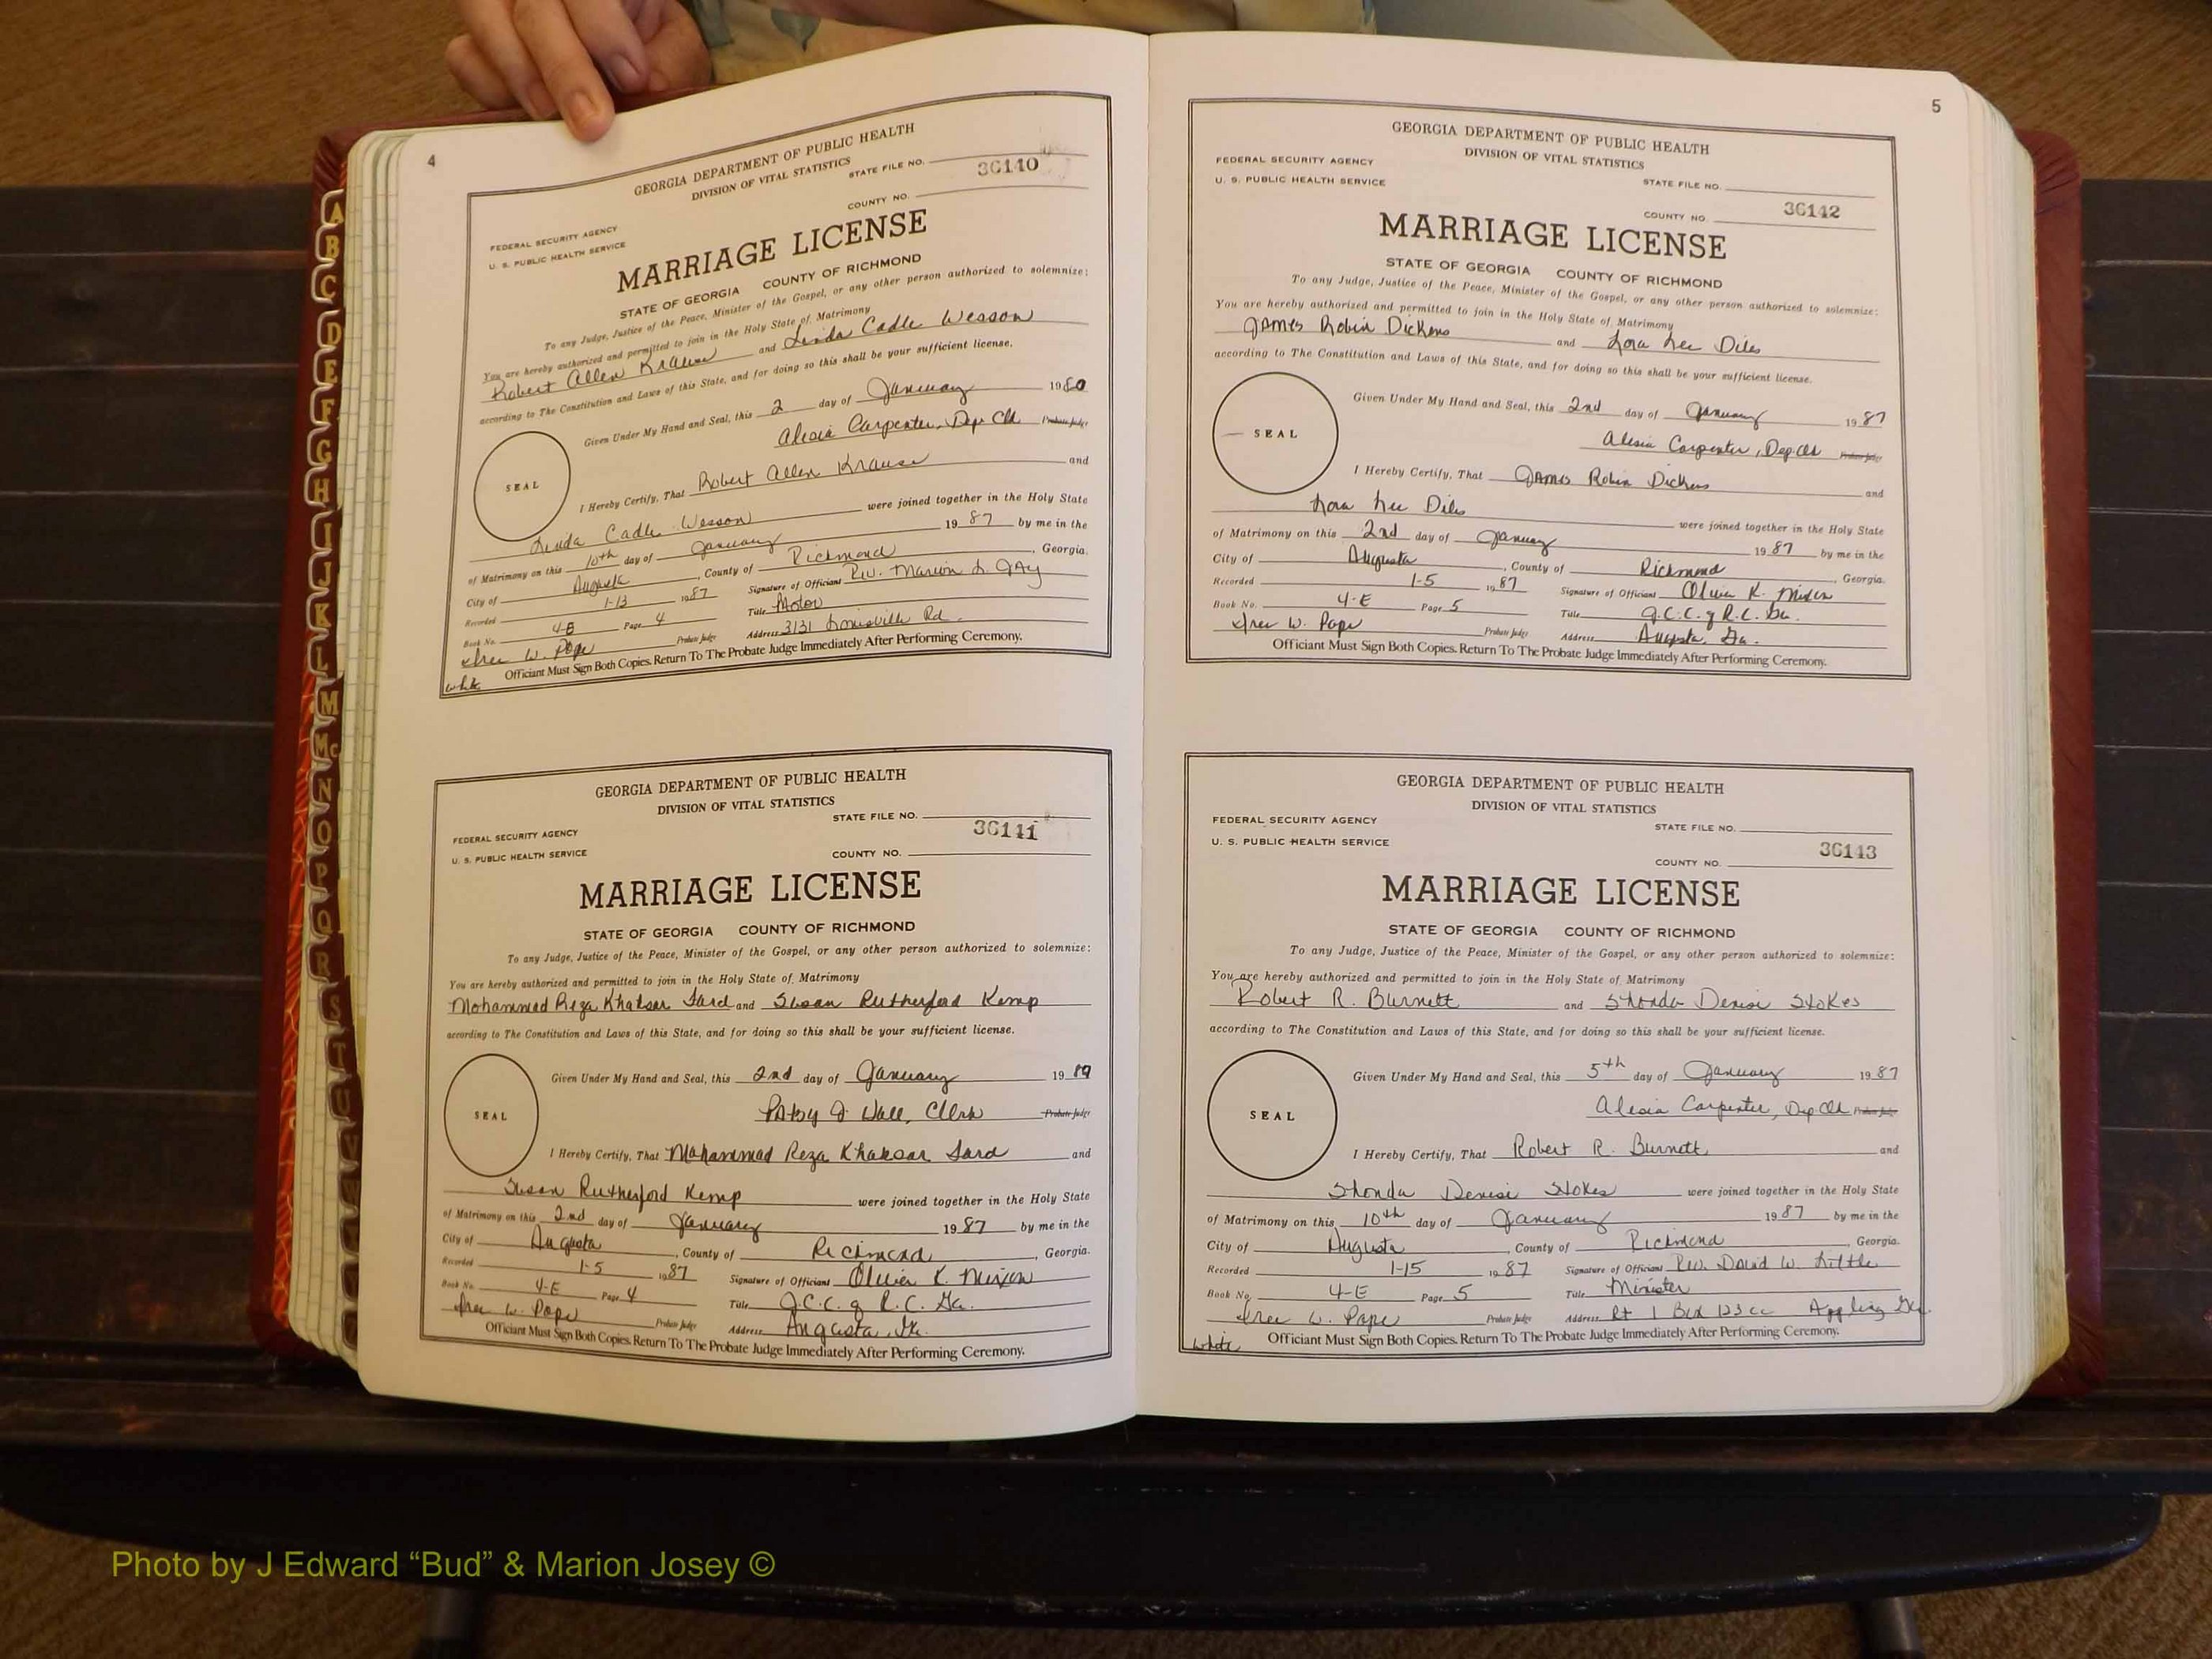 4
GEORGIA DEPARTMENT OF PUBLIC HEALTH
DIVISION OF VITAL STATISTICS
STATE FILE NO.
36140
FEDERAL SECURITY AGENCY
U. S. PUBLIC HEALTH SERVICE
COUNTY NO.
MARRIAGE LICENSE
STATE OF GEORGIA COUNTY OF RICHMOND
To any Judge, Justice of the Peace, Minister of the Gospel, or any other person authorized to solemnize:
You are hereby authorized and permitted to join in the Holy State of Matrimony
Robert Allen Krause and Linda Cadle Wesson
according to The Constitution and Laws of this State, and for doing so this shall be your sufficient license.
Given Under My Hand and Seal, this 2 day of January 19
Alesia Carpenter, Dep Clk Probate Judge
SEAL
I Hereby Certify, That Robert Allen Krause and
Linda Cadle Wesson were joined together in the Holy State
of Matrimony on this 10th day of January 19 87 by me in the
City of Augusta, County of Richmond, Georgia.
Recorded 1-13 1987 Signature of Officiant Rev. Marion L. Gay
Book No. Page 4 Title
Iree W. Pope Probate Judge Address 3131 Louisville Rd.
Officiant Must Sign Both Copies. Return To The Probate Judge Immediately After Performing Ceremony.
white
GEORGIA DEPARTMENT OF PUBLIC HEALTH
DIVISION OF VITAL STATISTICS
STATE FILE NO.
36141
FEDERAL SECURITY AGENCY
U. S. PUBLIC HEALTH SERVICE
COUNTY NO.
MARRIAGE LICENSE
STATE OF GEORGIA COUNTY OF RICHMOND
To any Judge, Justice of the Peace, Minister of the Gospel, or any other person authorized to solemnize:
You are hereby authorized and permitted to join in the Holy State of Matrimony
Mohammad Reza Khaksar Fard and Susan Rutherford Kemp
according to The Constitution and Laws of this State, and for doing so this shall be your sufficient license.
Given Under My Hand and Seal, this 2nd day of January 19
Patsy J. Wall, Clerk Probate Judge
SEAL
I Hereby Certify, That Mohammad Reza Khaksar Fard and
Susan Rutherford Kemp were joined together in the Holy State
of Matrimony on this 2nd day of January 19 87 by me in the
City of Augusta, County of Richmond, Georgia.
Recorded 1-5 1987 Signature of Officiant Olivier K. Mixon
Book No. 4-E Page 4 Title J.C.C. of R.C. Ga.
Iree W. Pope Probate Judge Address Augusta, Ga.
Officiant Must Sign Both Copies. Return To The Probate Judge Immediately After Performing Ceremony.
5
GEORGIA DEPARTMENT OF PUBLIC HEALTH
DIVISION OF VITAL STATISTICS
FEDERAL SECURITY AGENCY
U. S. PUBLIC HEALTH SERVICE
STATE FILE NO.
36142
COUNTY NO.
MARRIAGE LICENSE
STATE OF GEORGIA COUNTY OF RICHMOND
To any Judge, Justice of the Peace, Minister of the Gospel, or any other person authorized to solemnize:
You are hereby authorized and permitted to join in the Holy State of Matrimony
James Robin Dickens and Lora Lee Diles
according to The Constitution and Laws of this State, and for doing so this shall be your sufficient license.
Given Under My Hand and Seal, this 2nd day of January 19 87
Alesia Carpenter, Dep. Clk Probate Judge
SEAL
I Hereby Certify, That James Robin Dickens and
Lora Lee Diles were joined together in the Holy State
of Matrimony on this 2nd day of January 19 87 by me in the
City of Augusta, County of Richmond, Georgia.
Recorded 1-5 1987 Signature of Officiant Olivier K. Mixon
Book No. 4-E Page 5 Title J.C.C. of R.C. Ga.
Iree W. Pope Probate Judge Address Augusta, Ga.
Officiant Must Sign Both Copies. Return To The Probate Judge Immediately After Performing Ceremony.
GEORGIA DEPARTMENT OF PUBLIC HEALTH
DIVISION OF VITAL STATISTICS
FEDERAL SECURITY AGENCY
U. S. PUBLIC HEALTH SERVICE
STATE FILE NO.
36143
COUNTY NO.
MARRIAGE LICENSE
STATE OF GEORGIA COUNTY OF RICHMOND
To any Judge, Justice of the Peace, Minister of the Gospel, or any other person authorized to solemnize:
You are hereby authorized and permitted to join in the Holy State of Matrimony
Robert R. Burnett and Shonda Denise Stokes
according to The Constitution and Laws of this State, and for doing so this shall be your sufficient license.
Given Under My Hand and Seal, this 5th day of January 19 87
Alesia Carpenter, Dep Clk Probate Judge
SEAL
I Hereby Certify, That Robert R. Burnett and
Shonda Denise Stokes were joined together in the Holy State
of Matrimony on this 10th day of January 19 87 by me in the
City of Augusta, County of Richmond, Georgia.
Recorded 1-15 1987 Signature of Officiant Rev. David W. Little
Book No. 4-E Page 5 Title Minister
Iree W. Pope Probate Judge Address Rt 1 Box 123 cc Appling Ga.
Officiant Must Sign Both Copies. Return To The Probate Judge Immediately After Performing Ceremony.
white
A
B
C
D
E
F
G
H
I
J
K
L
M
Mc
N
O
P
Q
R
S
T
U
Photo by J Edward “Bud” & Marion Josey ©